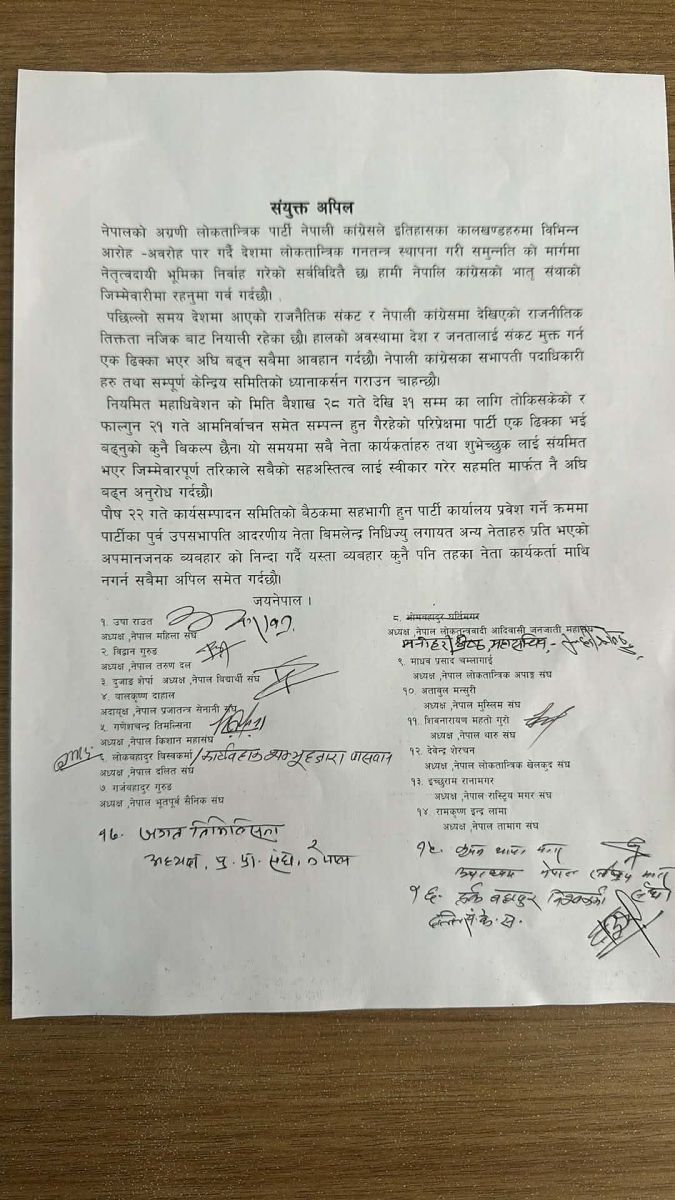 संयुक्त अपिल
नेपालको अग्रणी लोकतान्त्रिक पार्टी नेपाली कांग्रेसले इतिहासका कालखण्डहरुमा विभिन्न
आरोह -अवरोह पार गर्दै देशमा लोकतान्त्रिक गनतन्त्र स्थापना गरी समुन्नति को मार्गमा
नेतृत्वदायी भूमिका निर्वाह गरेको सर्वविदितै छ। हामी नेपालि कांग्रेसको भातृ संथाको
जिम्मेवारीमा रहनुमा गर्व गर्दछौ।
पछिल्लो समय देशमा आएको राजनैतिक संकट र नेपाली कांग्रेसमा देखिएको राजनीतिक
तिक्तता नजिक बाट नियाली रहेका छौ। हालको अवस्थामा देश र जनतालाई संकट मुक्त गर्न
एक ढिक्का भएर अघि बढ्न सबैमा आवहान गर्दछौ। नेपाली कांग्रेसका सभापती पदाधिकारी
हरु तथा सम्पूर्ण केन्द्रिय समितिको ध्यानाकर्सन गराउन चाहन्छौ।
नियमित महाधिवेशन को मिति बैशाख २८ गते देखि ३१ सम्म का लागि तोकिसकेको र
फाल्गुन २१ गते आमनिर्वाचन समेत सम्पन्न हुन गैरहेको परिप्रेक्षमा पार्टी एक ढिक्का भई
बढ्नुको कुनै बिकल्प छैन। यो समयमा सबै नेता कार्यकर्ताहरु तथा शुभेच्छुक लाई संयमित
भएर जिम्मेवारपूर्ण तरिकाले सबैको सहअस्तित्व लाई स्वीकार गरेर सहमति मार्फत नै अघि
बढ्न अनुरोध गर्दछौ।
पौष २२ गते कार्यसम्पादन समितिको बैठकमा सहभागी हुन पार्टी कार्यालय प्रवेश गर्ने क्रममा
पार्टीका पुर्व उपसभापति आदरणीय नेता बिमलेन्द्र निधिज्यु लगायत अन्य नेताहरु प्रति भएको
अपमानजनक ब्यवहार को निन्दा गर्दै यस्ता ब्यवहार कुनै पनि तहका नेता कार्यकर्ता माथि
नगर्न सबैमा अपिल समेत गर्दछौ।
जयनेपाल ।
१. उषा राउत
अध्यक्ष ,नेपाल महिला संघ
२. बिद्वान गुरुङ
अध्यक्ष ,नेपाल तरुण दल
३. दुजाङ शेर्पा अध्यक्ष ,नेपाल विद्यार्थी संघ
४. वालकृष्ण दाहाल
अदायक्ष ,नेपाल प्रजातन्त्र सेनानी संघ
५. गणेशचन्द्र तिमल्सिना
अध्यक्ष ,नेपाल किशान महासंघ
६. लोकबहादुर विस्वकर्मा /कार्यवाहक पासवान
अध्यक्ष ,नेपाल दलित संघ
७. गजंबहादुर गुरुङ
अध्यक्ष ,नेपाल भूतपूर्व सैनिक संघ
१७. जगत तिमिल्सिना
अध्यक्ष, पु. प्रा. संघ, नेपाल
८. ओमबहादुर घर्तिमगर
अध्यक्ष ,नेपाल लोकतन्त्रवादी आदिवासी जनजाती महासंघ
मनोहर श्रेष्ठ महासचिव,-
९. माधव प्रसाद चम्लागाई
अध्यक्ष ,नेपाल लोकतान्त्रिक अपाङ्ग संघ
१०. अताबुल मन्सुरी
अध्यक्ष ,नेपाल मुस्लिम संघ
११. शिबनारायण महतो गुरो
अध्यक्ष ,नेपाल थारु संघ
१२. देबेन्द्र शेरचन
अध्यक्ष ,नेपाल लोकतान्त्रिक खेलकुद संघ
१३. इच्छुराम रानामगर
अध्यक्ष ,नेपाल रास्ट्रिय मगर संघ
१४. रामकृष्ण इन्द्र लामा
अध्यक्ष ,नेपाल तामांग संघ
१५. थापा मगर
नेपाल
१६. हर्क बहादुर विश्वकर्मा